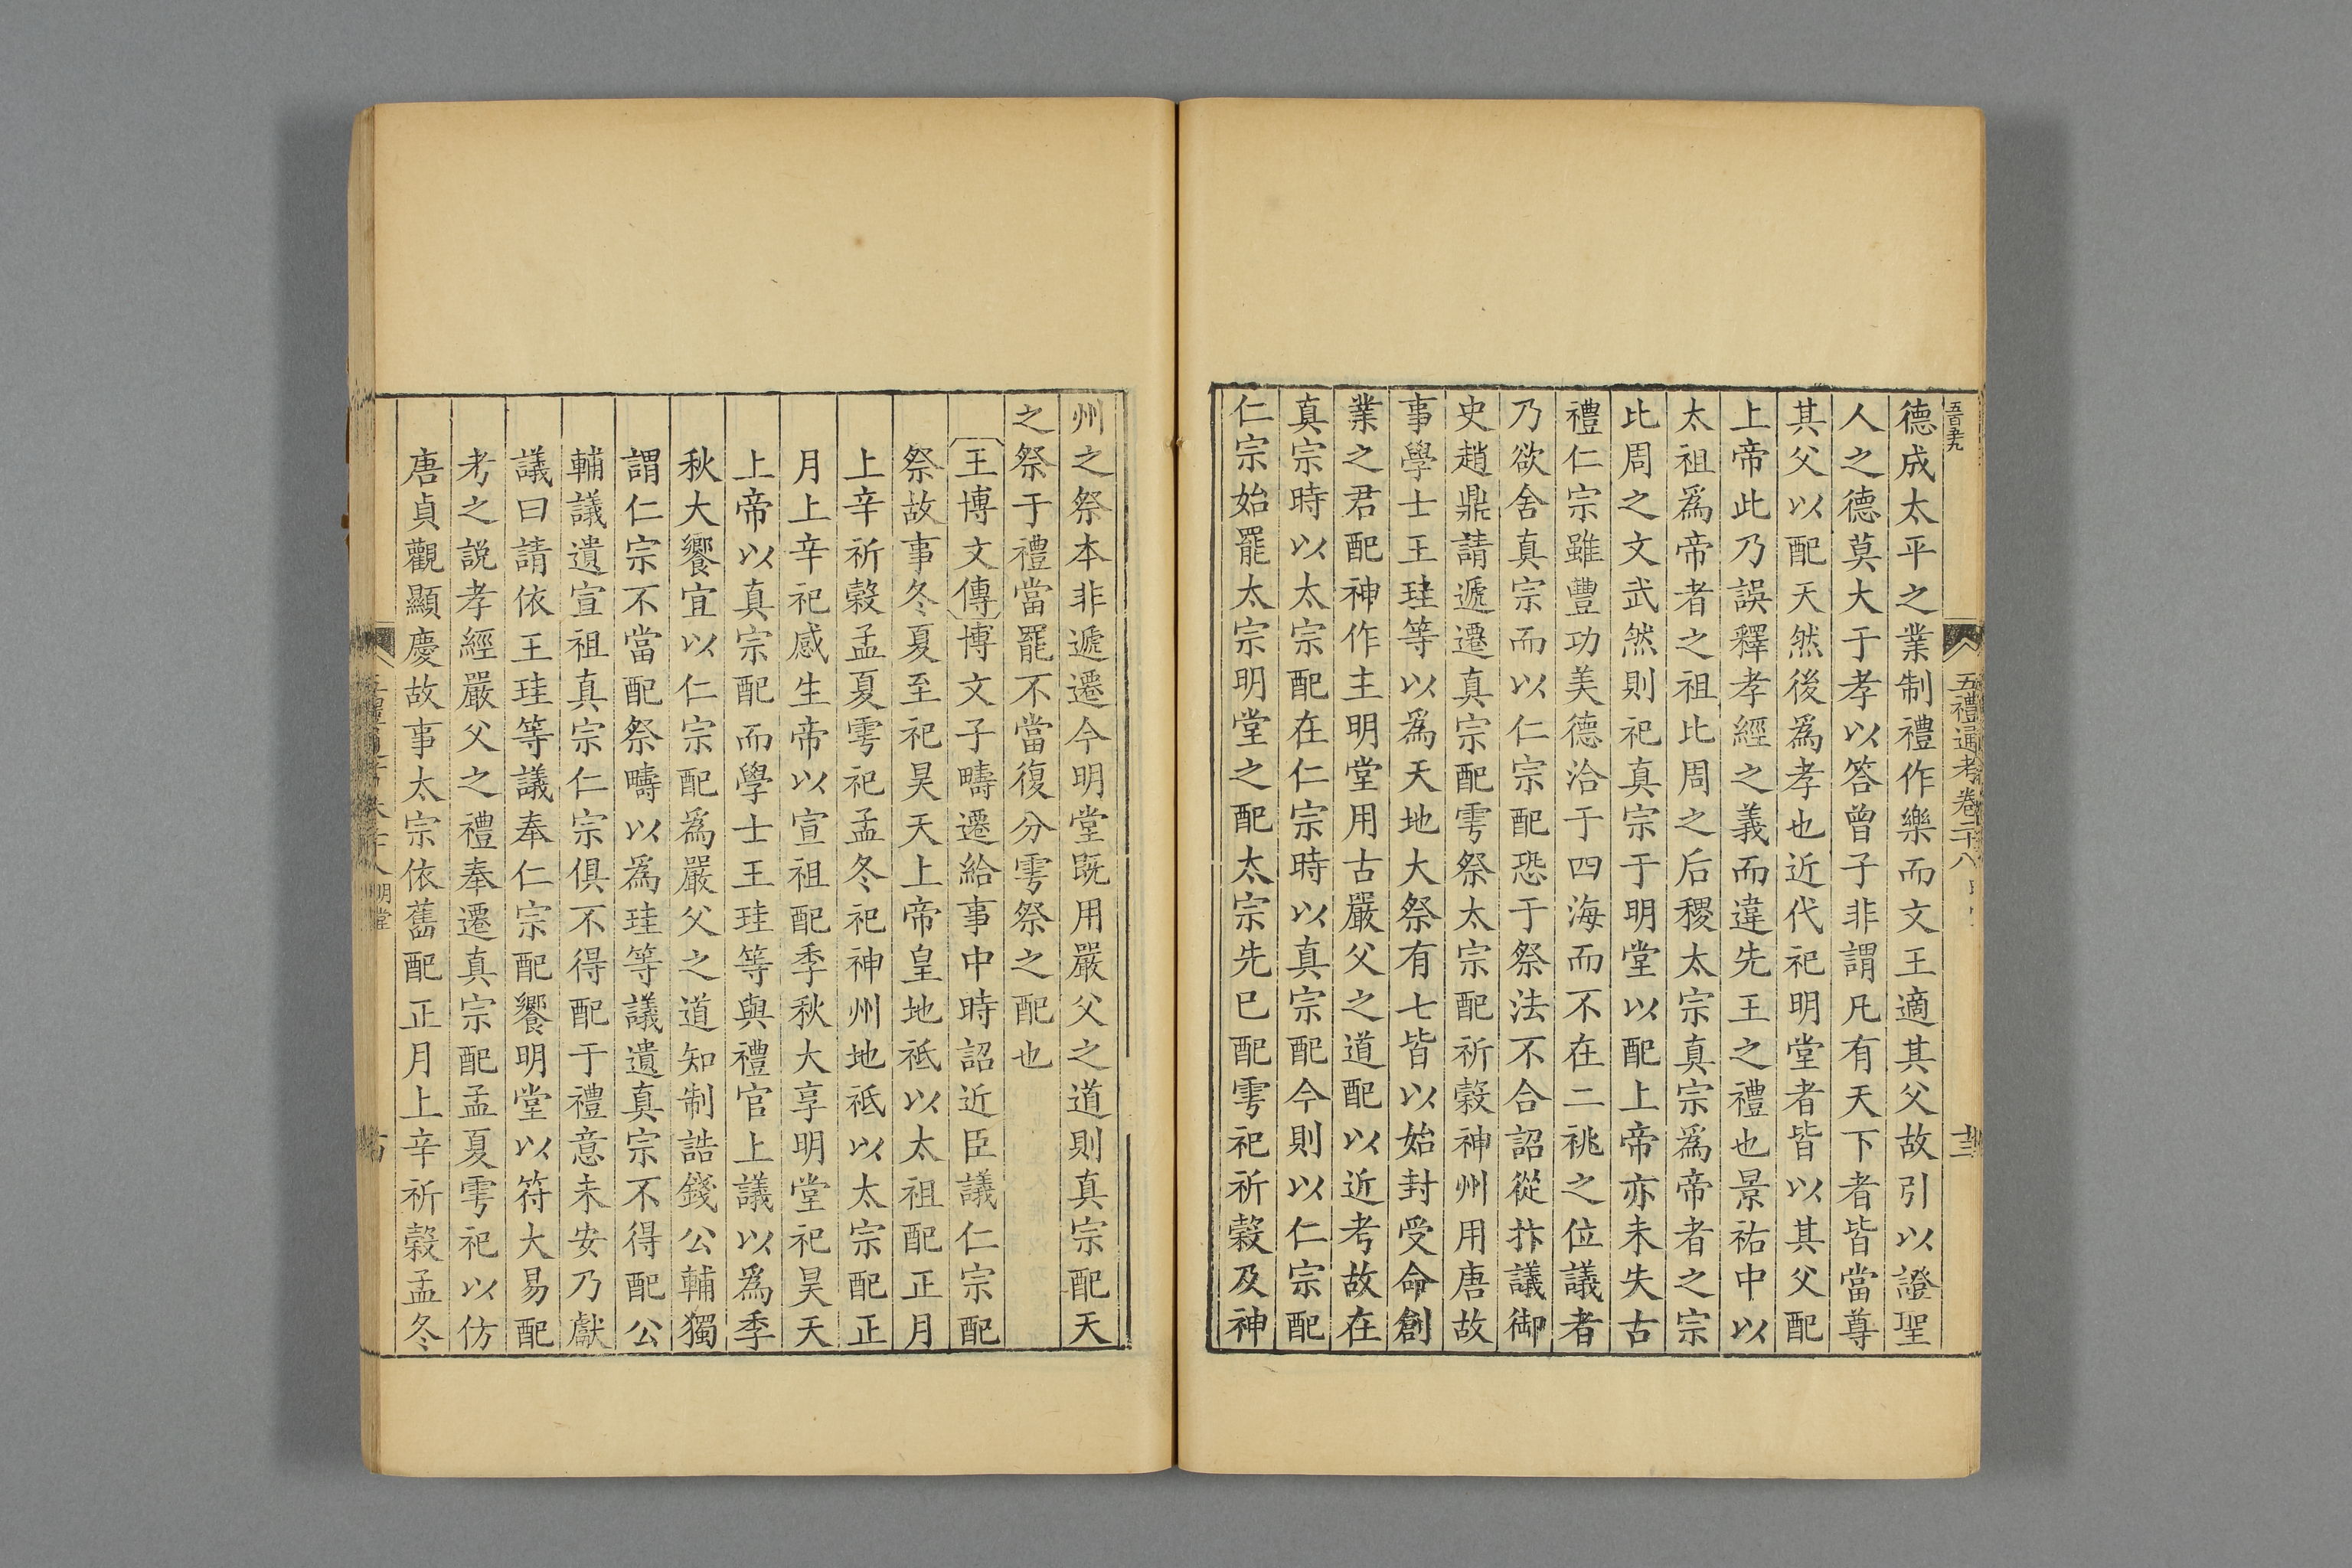 五禮通考卷二十八
德成太平之業制禮作樂而文王適其父故引以證聖
人之德莫大于孝以答曾子非謂凡有天下者皆當尊
其父以配天然後爲孝也近代祀明堂者皆以其父配
上帝此乃誤釋孝經之義而違先王之禮也景祐中以
太祖爲帝者之祖比周之后稷太宗真宗爲帝者之宗
比周之文武然則祀真宗于明堂以配上帝亦未失古
禮仁宗雖豐功美德洽于四海而不在二祧之位議者
乃欲舍真宗而以仁宗配恐于祭法不合詔從抃議御
史趙鼎請遞遷真宗配雩祭太宗配祈穀神州用唐故
事學士王珪等以爲天地大祭有七皆以始封受命創
業之君配神作主明堂用古嚴父之道配以近考故在
真宗時以太宗配在仁宗時以真宗配今則以仁宗配
仁宗始罷太宗明堂之配太宗先已配雩祀祈穀及神
州之祭本非遞遷今明堂既用嚴父之道則真宗配天
之祭于禮當罷不當復分雩祭之配也
王博文傳博文子疇遷給事中時詔近臣議仁宗配
祭故事冬夏至祀昊天上帝皇地祇以太祖配正月
上辛祈穀孟夏雩祀孟冬祀神州地祇以太宗配正
月上辛祀感生帝以宣祖配季秋大享明堂祀昊天
上帝以真宗配而學士王珪等與禮官上議以爲季
秋大饗宜以仁宗配爲嚴父之道知制誥錢公輔獨
謂仁宗不當配祭疇以爲珪等議遺真宗不得配公
輔議遺宣祖真宗仁宗俱不得配于禮意未安乃獻
議曰請依王珪等議奉仁宗配饗明堂以符大易配
考之說孝經嚴父之禮奉遷真宗配孟夏雩祀以仿
唐貞觀顯慶故事太宗依舊配正月上辛祈穀孟冬
明堂